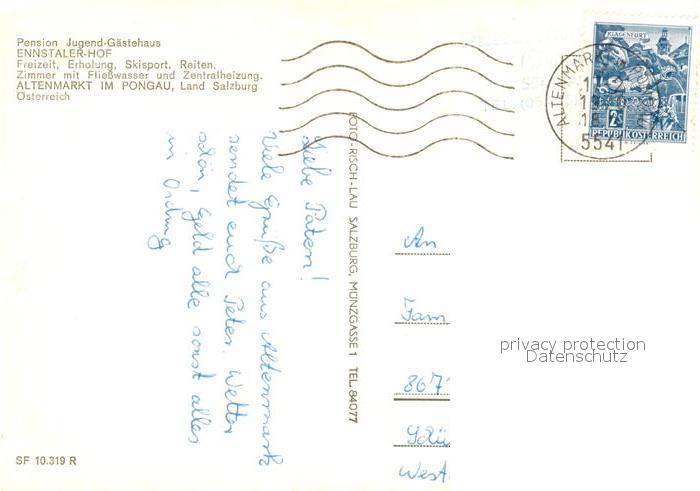 Pension Jugend-Gästehaus
ENNSTALER-HOF
Freizeit, Erholung, Skisport, Reiten.
Zimmer mit Fließwasser und Zentralheizung.
ALTENMARKT IM PONGAU, Land Salzburg
Österreich
KLAGENFURT
2S
REPUBLIK ÖSTERREICH
ALTENMAR
5541
Liebe Paten!
Viele Grüße aus Altenmarkt
sendet euch Peter. Wetter
schön, Geld alle sonst alles
in Ordnung
FOTO-RISCH-LAU SALZBURG, MÜNZGASSE 1 TEL. 84077
An
Fam
867
West.
privacy protection
Datenschutz
SF 10.319 R